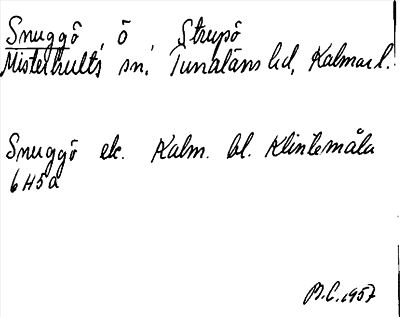 Snuggö, ö Strupö
Misterhults sn, Tunaläns hd, Kalmar l.
Snuggö ek. Kalm. bl. Klintemåla
6H5a
M.C. 1957